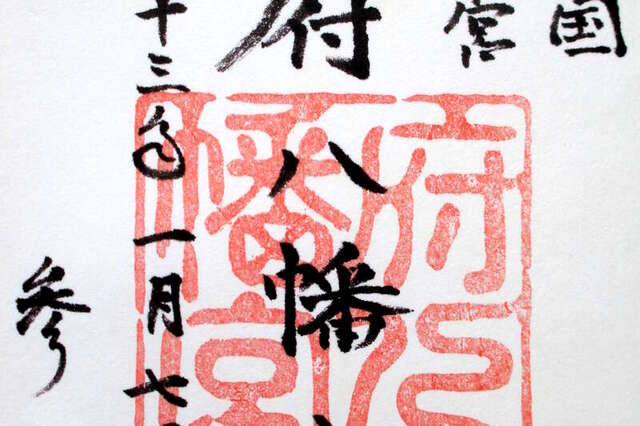 国
宮
府八幡
十三年一月七
参
府八
幡宮